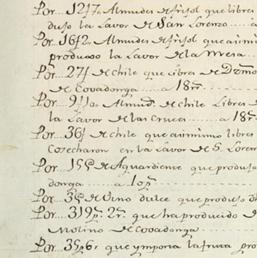 Por 1247. Almudes de frisol que libres
dujo la Lavor de San Lorenzo a
Por 1642 Almudes de frisol que asimis
produxo la Lavor de la mesa
Por 271 de Chile que Libres de Dzmo
de Covadonga a 18
Por Almud. de chile Libres de
la Lavor de las Cruces a 18
Por 361 de Chile que asimismo libres
Cosecharon en la Lavor de S. Loren
Por 155 de Aguardiente que produs
donga a 10
Por 35 de Vino dulce que produs
Por 319 que ha producido
Molino de covadonga
Por que ymporta la fruta pro